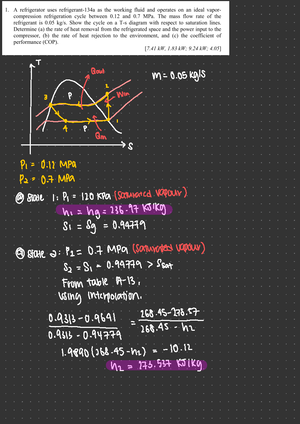 1. A refrigerator uses refrigerant-134a as the working fluid and operates on an ideal vapor-
compression refrigeration cycle between 0.12 and 0.7 MPa. The mass flow rate of the
refrigerant is 0.05 kg/s. Show the cycle on a T-s diagram with respect to saturation lines.
Determine (a) the rate of heat removal from the refrigerated space and the power input to the
compressor, (b) the rate of heat rejection to the environment, and (c) the coefficient of
performance (COP).
[7.41 kW, 1.83 kW; 9.24 kW; 4.05]
T
Qout
m = 0.05 kg/s
2
3
P
Win
4
P
1
Qin
S
P1 = 0.12 MPa
P2 = 0.7 MPa
State 1: P1 = 120 kPa (saturated vapour)
h1 = hg = 236.97 kJ/kg
S1 = Sg = 0.94779
State 2: P2 = 0.7 MPa (saturated vapour)
S2 = S1 = 0.94779 > Ssat
From table A-13,
Using Interpolation.
0.9313 - 0.9641 / 0.9313 - 0.94779 = 268.45 - 278.57 / 268.45 - h2
1.9890 (268.45 - h2) = -10.12
h2 = 273.537 kJ/kg